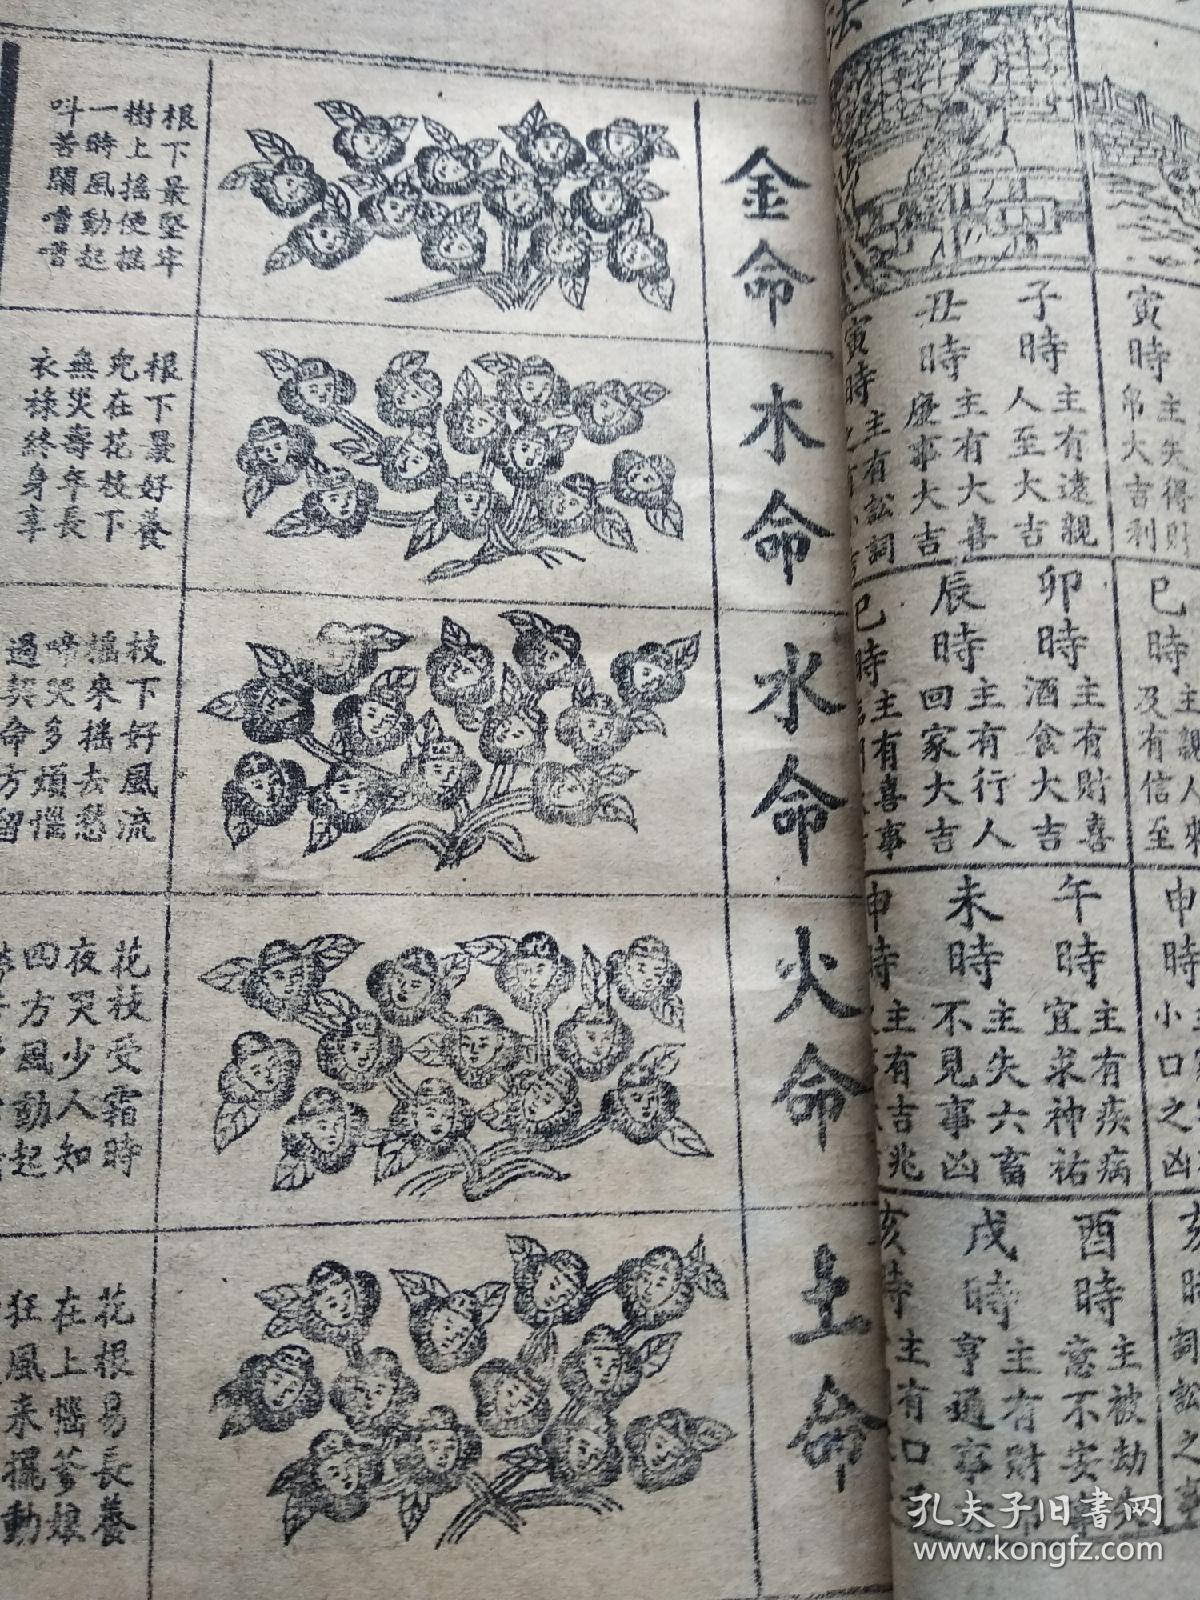 寅時
主失得財
帛大吉利
子時
主有遠親
人至大吉
丑時
主有大喜
慶事大吉
寅時
主有訟詞
巳時
及有信至
卯時
主有財喜
酒食大吉
辰時
主有行人
回家大吉
巳時
主有喜事
申時
小口之凶
午時
主有疾病
宜求神祐
未時
主失六畜
不見事凶
申時
主有吉兆
詞訟之事
酉時
主被劫失
意不安
戌時
主有財
亨通事
亥時
主有口
金命
根下最堅牢
樹上搖便搖
一時風動起
呌苦鬧嘈嘈
木命
根下最好養
兜在花枝下
無災壽年長
衣祿終身享
水命
枝下好風流
搖來搖去愁
啼哭多煩惱
過契命方留
火命
花枝受霜時
夜哭少人知
四方風動起
土命
花根易長養
在上惱爹娘
狂風來擺動
孔夫子旧书网
www.kongfz.com